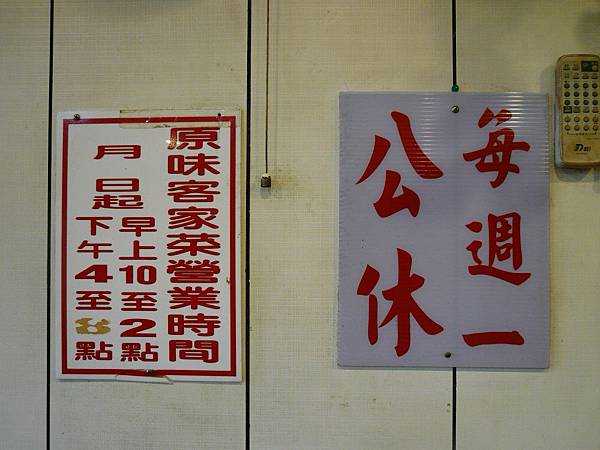 原味客家菜營業時間
月 日起
早上10至2點
下午4至8點
每週一
公休